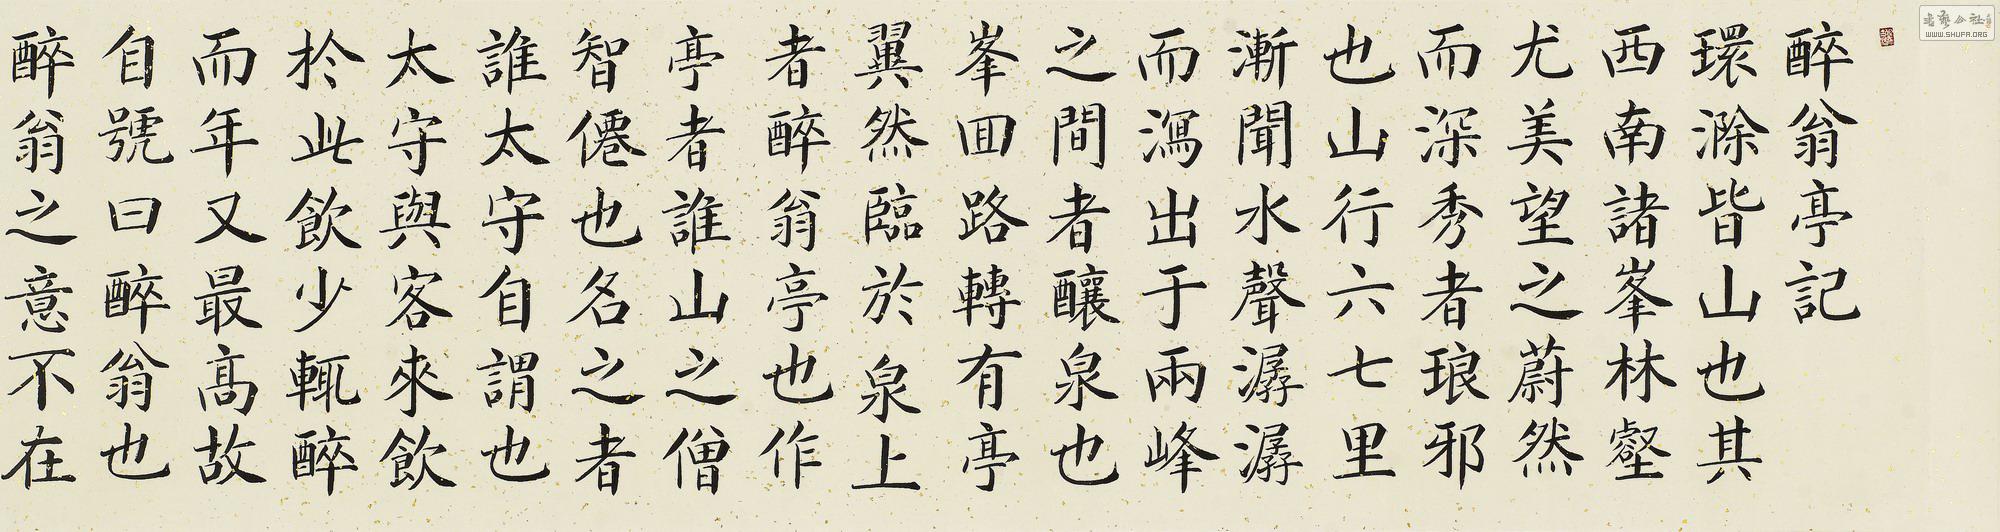 醉翁亭記
環滁皆山也其
西南諸峯林壑
尤美望之蔚然
而深秀者琅邪
也山行六七里
漸聞水聲潺潺
而瀉出于兩峰
之間者釀泉也
峯回路轉有亭
翼然臨於泉上
者醉翁亭也作
亭者誰山之僧
智僊也名之者
誰太守自謂也
太守與客來飲
於此飲少輒醉
而年又最高故
自號曰醉翁也
醉翁之意不在
WWW.SHUFA.ORG